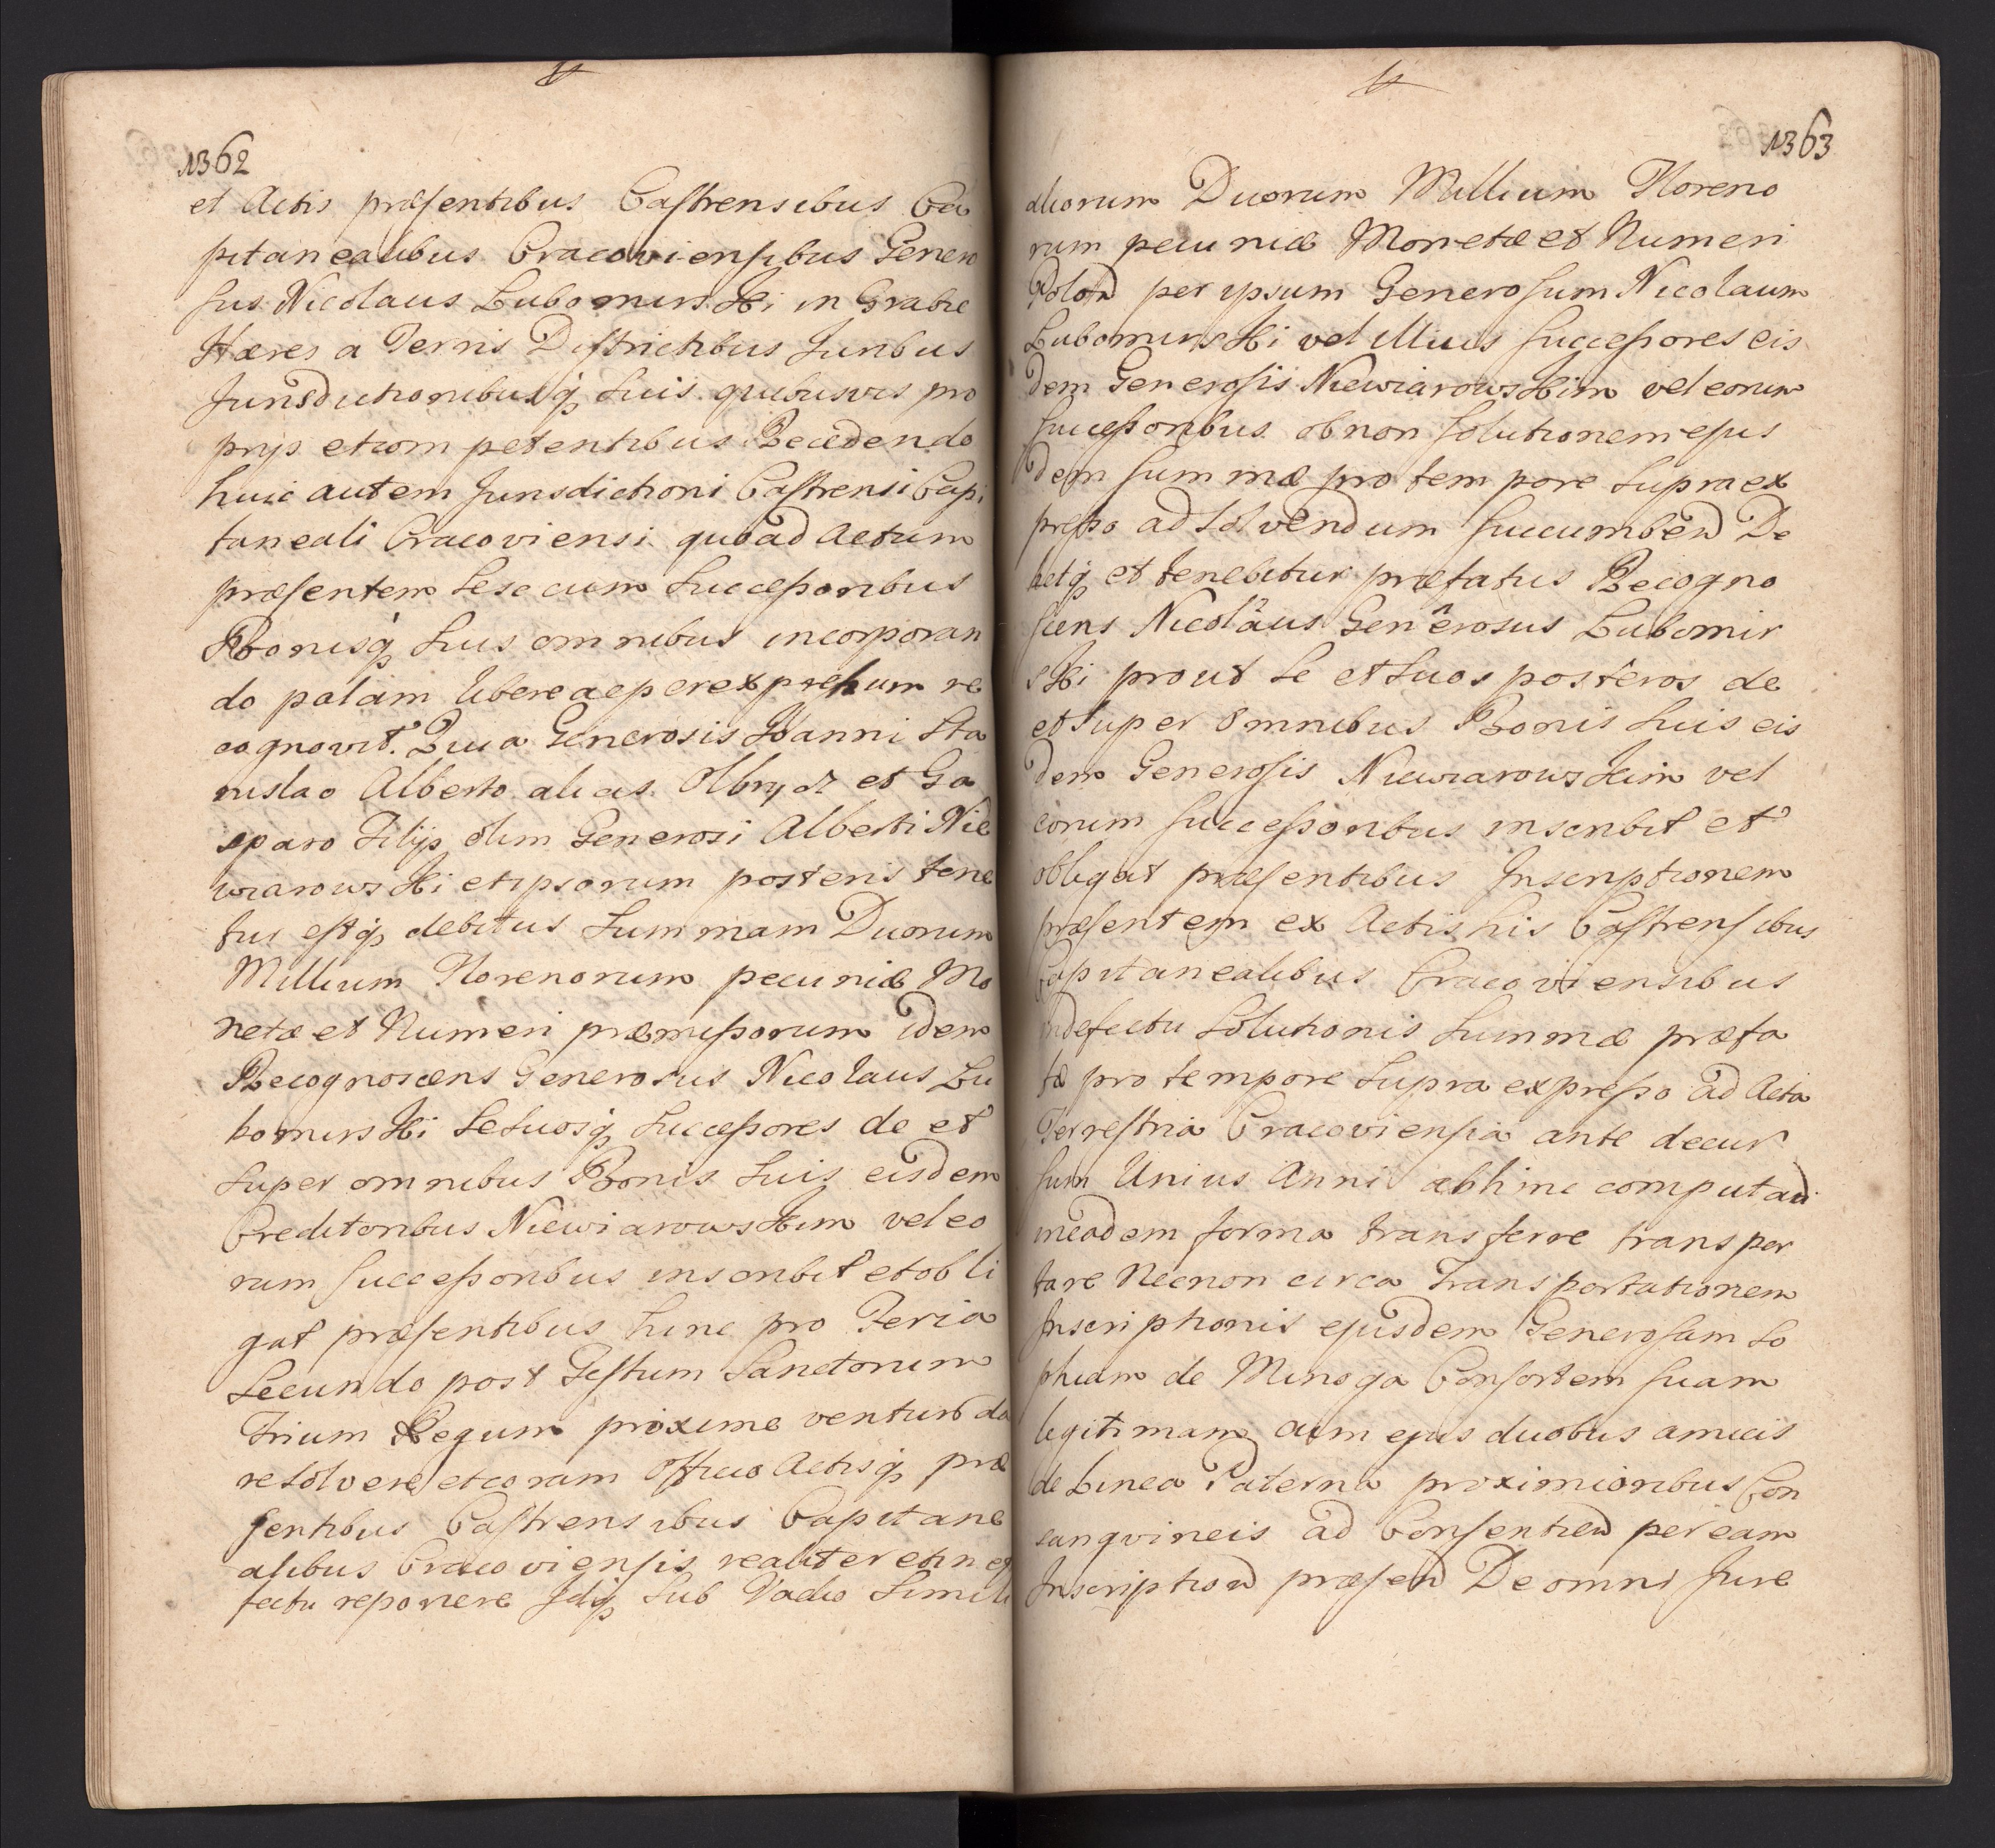 1362
et Actis præsentibus Castrensibus Ca
pitanealibus Cracoviensibus Genero
sus Nicolaus Lubomirski in Grabie
Hæres a Terris Districtibus Juribus
Jurisdictionibusq suis quibusvis pro
prijs et competentibus Recedendo
huic autem Jurisdictioni Castrensi Capi
taneali Cracoviensi quoad Actum
præsentem sese cum successoribus
Bonisq suis omnibus incorporan
do palam libere ac per expressum re
cognovit. Quia Generosis Joanni Sta
nislao Alberto alias Olbrycht et Ga
sparo Filijs olim Generosi Alberti Nie
wiarowski et ipsorum posteris tene
tur estq debitus Summam Duorum
Millium Florenorum pecuniæ Mo
netæ et Numeri præmissorum idem
Recognoscens Generosus Nicolaus Lu
bomirski se suosq successores de et
super omnibus Bonis suis eisdem
Creditoribus Niewiarowskim vel eo
rum successoribus inscribit et obli
gat præsentibus hinc pro Feria
Secunda post Festum Sanctorum
Trium Regum proxime venturo da
re solvere et coram Officio Actisq præ
sentibus Castrensibus Capitane
alibus Cracoviensis realiter et in ef
fectu reponere Idq sub Vadio simili
1363
aliorum Duorum Millium Floreno
rum pecuniæ Monetæ et Numeri
Polon per ipsum Generosum Nicolaum
Lubomirski vel illius successores eis
dem Generosis Niewiarowskim vel eorum
successoribus ob non solutionem ejus
dem summæ pro tempore supra ex
presso ad solvendum succumben De
betq et tenebitur præfatus Recogno
scens Nicolaus Generosus Lubomir
ski prout se et suos posteros de
et super omnibus Bonis suis eis
dem Generosis Niewiarowskim vel
eorum successoribus inscribit et
obligat præsentibus Inscriptionem
præsentem ex Actis his Castrensibus
Capitanealibus Cracoviensibus
in defectu solutionis summæ præfa
tæ pro tempore supra expresso ad Acta
Terrestria Cracoviensia ante decur
sum Unius Anni abhinc computan
in eadem forma transferre transpor
tare Necnon circa Transportationem
Inscriptionis ejusdem Generosam So
phiam de Minoga Consortem suam
legitimam cum ejus duobus amicis
de Linea Paterna proximioribus Con
sanguineis ad Consentien per eam
Inscription præsen De omni Jure